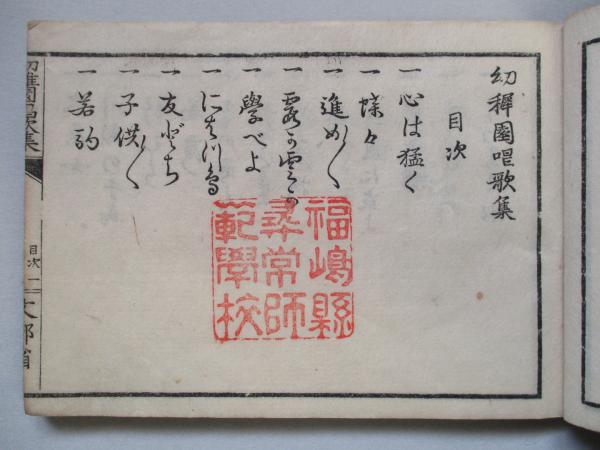 幼穉園唱歌集
目次
一 心は猛く
一 蝶々
一 進め〳〵
一 霞か雲か
一 學べよ
一 にはつ鳥
一 友どち
一 子供〳〵
一 若駒
福嶋縣
尋常師
範學校
幼稚園唱歌集
目次 一
文部省